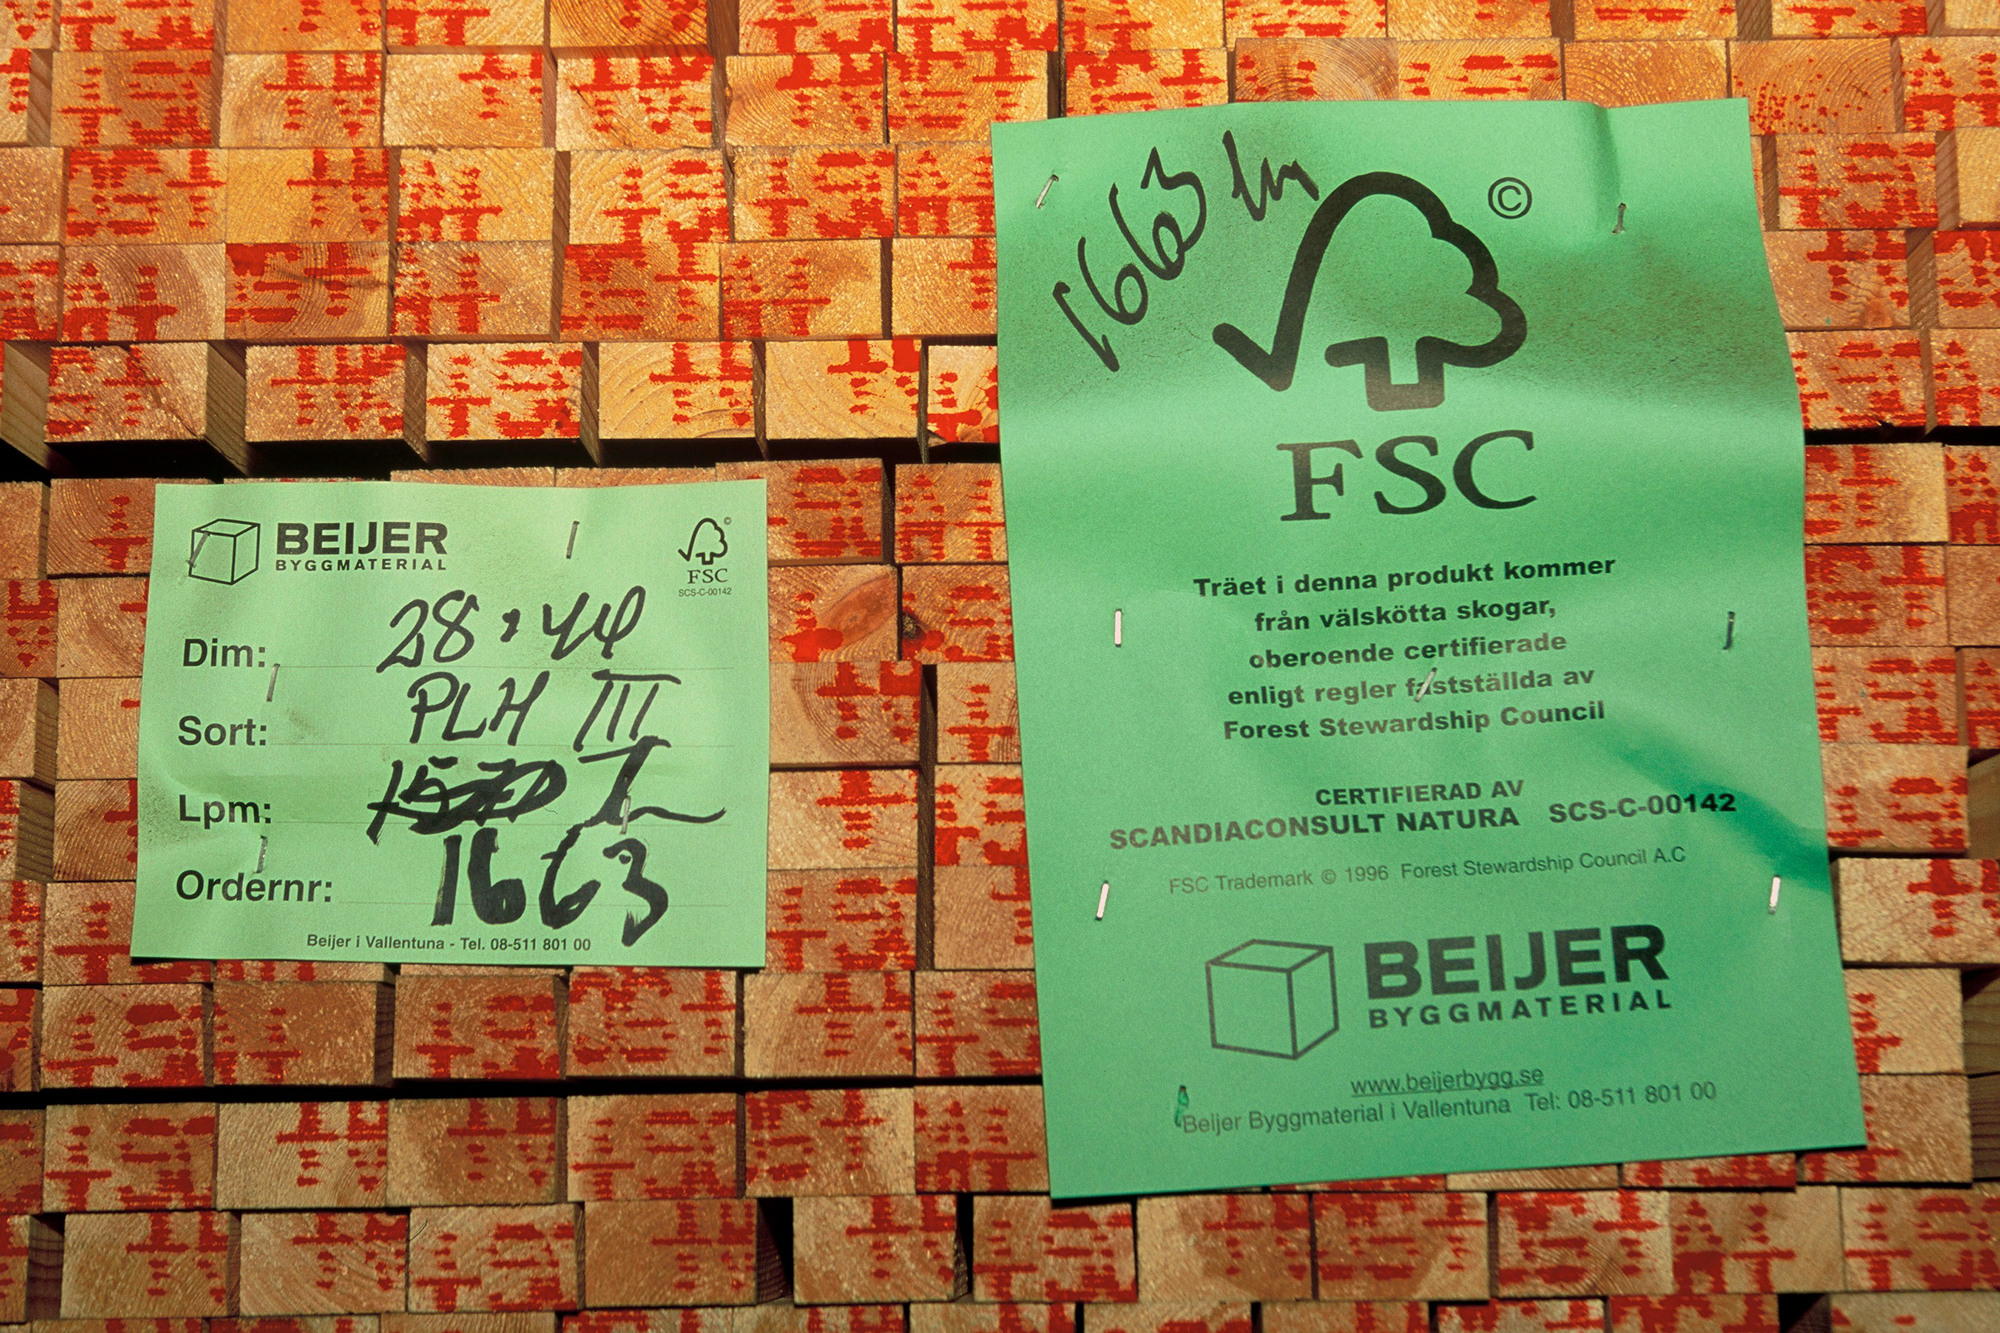 BEIJER
BYGGMATERIAL
©
FSC
SCS-C-00142
Dim: 28 × 44
Sort: PLH III
Lpm:
Ordernr: 1663
Beijer i Vallentuna - Tel. 08-511 801 00
1663
©
FSC
Träet i denna produkt kommer
från välskötta skogar,
oberoende certifierade
enligt regler fastställda av
Forest Stewardship Council
CERTIFIERAD AV
SCANDIACONSULT NATURA SCS-C-00142
FSC Trademark © 1996 Forest Stewardship Council A.C
BEIJER
BYGGMATERIAL
www.beijerbygg.se
Beijer Byggmaterial i Vallentuna Tel: 08-511 801 00